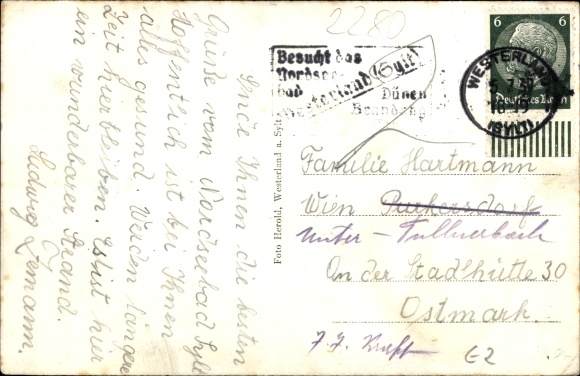 2280
6
Besucht das
Nordsee-
bad
Westerland (Sylt)
Dünen
Brandung
WESTERLAND
(SYLT)
Deutsches Reich
Sende Ihnen die besten
Grüße vom Nordseebad Sylt
Hoffentlich ist bei Ihnen
alles gesund. Werden längere
Zeit hierbleiben. Es ist hier
ein wunderbarer Strand.
Ludwig Zemann.
Foto Herold, Westerland a. Sylt
Familie Hartmann
Wien Purkersdorf
Unter-Tullnerbach
An der Stadlhütte 30
Ostmark.
E2